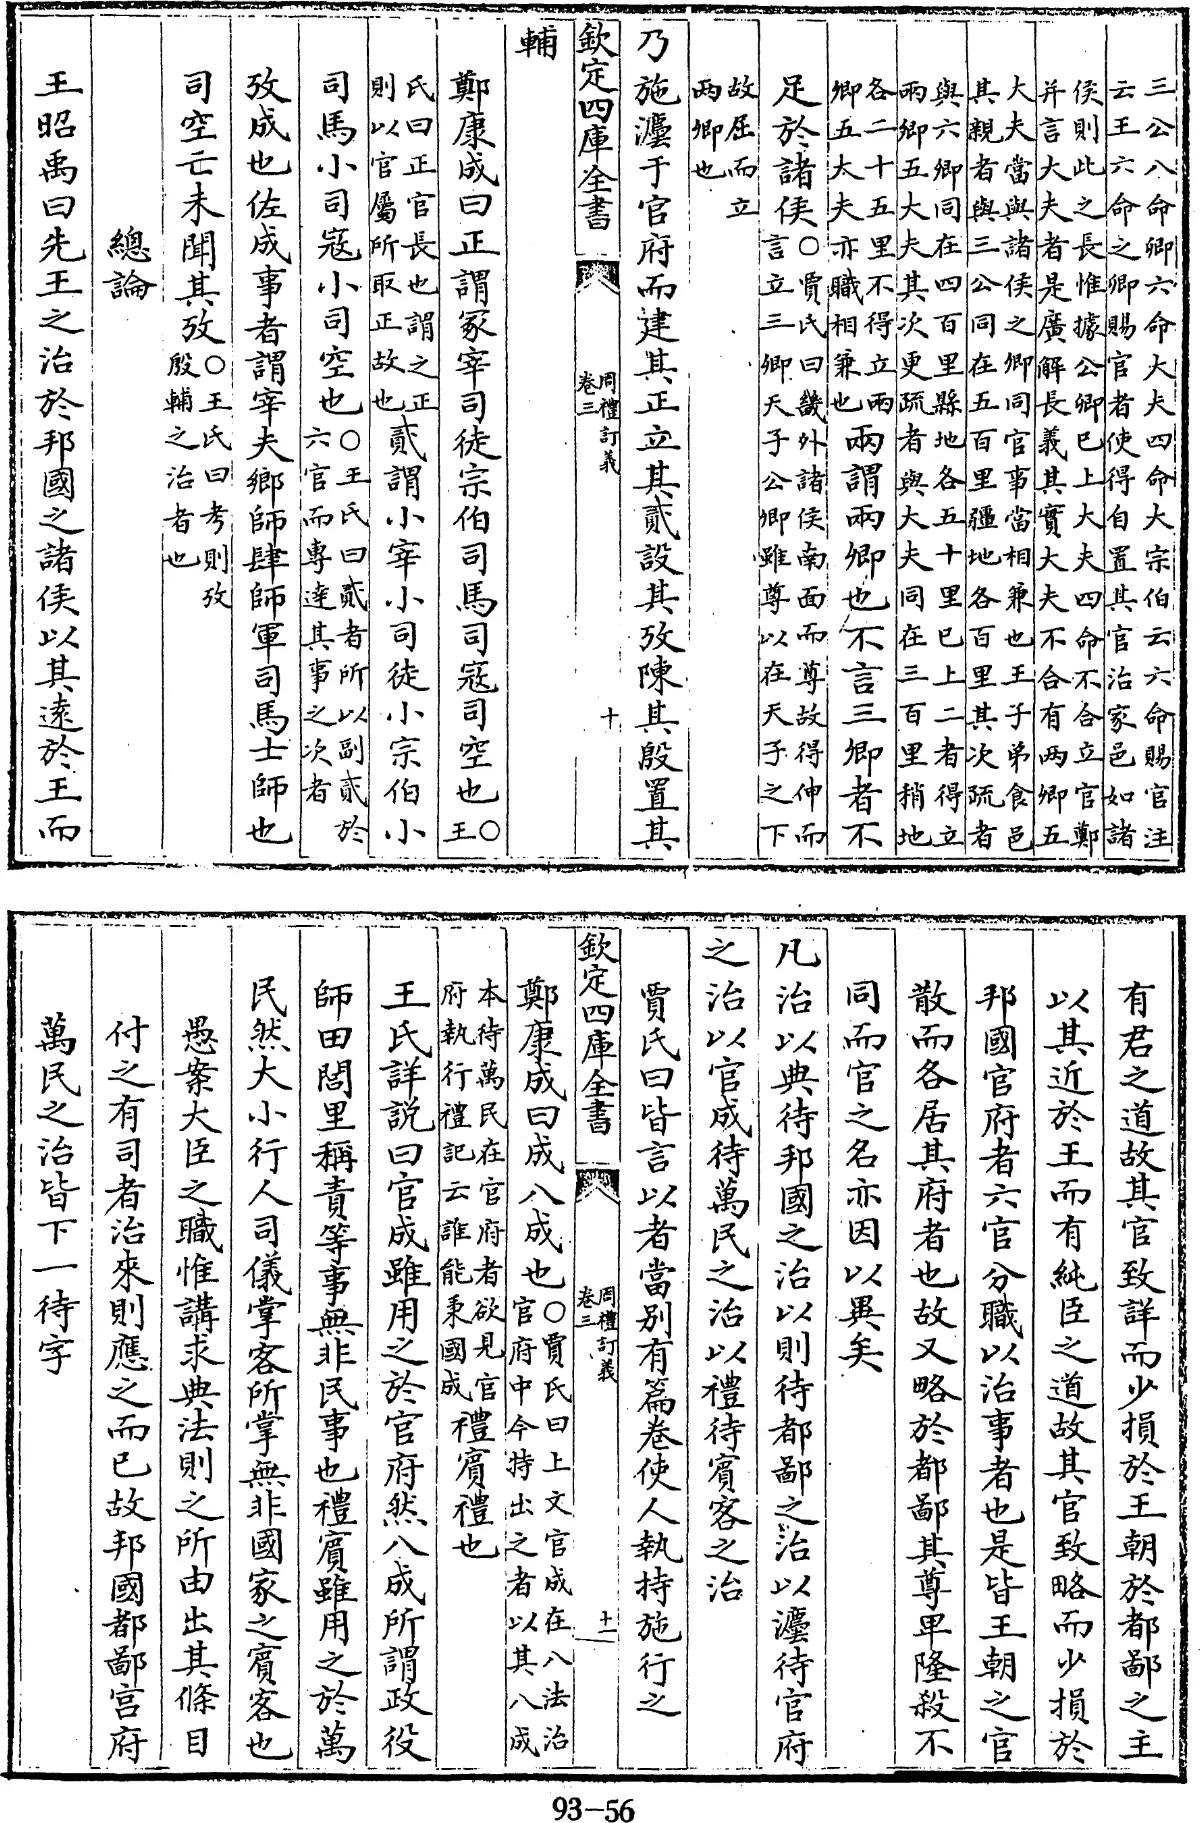 三公八命卿六命大夫四命大宗伯云六命賜官注
云王六命之卿賜官者使得自置其官治家邑如諸
侯則此之長惟據公卿已上大夫四命不合立官鄭
并言大夫者是廣解長義其實大夫不合有兩卿五
大夫當與諸侯之卿同官事當相兼也王子弟食邑
其親者與三公同在五百里疆地各百里其次疏者
與六卿同在四百里縣地各五十里已上二者得立
兩卿五大夫其次更疏者與大夫同在三百里稍地
各二十五里不得立兩卿五大夫亦職相兼也兩謂兩卿也不言三卿者不
足於諸侯○賈氏曰畿外諸侯南面而尊故得伸而言立三卿天子公卿雖尊以在天子之下
故屈而立
兩卿也
乃施灋于官府而建其正立其貳設其攷陳其殷置其
欽定四庫全書 周禮訂義 卷三 十
輔
鄭康成曰正謂冢宰司徒宗伯司馬司寇司空也○王
氏曰正官長也謂之正則以官屬所取正故也貳謂小宰小司徒小宗伯小
司馬小司寇小司空也○王氏曰貳者所以副貳於六官而專達其事之次者
攷成也佐成事者謂宰夫鄉師肆師軍司馬士師也
司空亡未聞其攷○王氏曰考則攷殷輔之治者也
總論
王昭禹曰先王之治於邦國之諸侯以其遠於王而
有君之道故其官致詳而少損於王朝於都鄙之主
以其近於王而有純臣之道故其官致略而少損於
邦國官府者六官分職以治事者也是皆王朝之官
散而各居其府者也故又略於都鄙其尊卑隆殺不
同而官之名亦因以異矣
凡治以典待邦國之治以則待都鄙之治以灋待官府
之治以官成待萬民之治以禮待賓客之治
賈氏曰皆言以者當别有篇卷使人執持施行之
欽定四庫全書 周禮訂義 卷三 十一
鄭康成曰成八成也○賈氏曰上文官成在八法治官府中今特出之者以其八成
本待萬民在官府者欲見官府執行禮記云誰能秉國成禮賓禮也
王氏詳説曰官成雖用之於官府然八成所謂政役
師田閭里稱責等事無非民事也禮賓雖用之於萬
民然大小行人司儀掌客所掌無非國家之賓客也
愚案大臣之職惟講求典法則之所由出其條目
付之有司者治來則應之而已故邦國都鄙官府
萬民之治皆下一待字
93-56